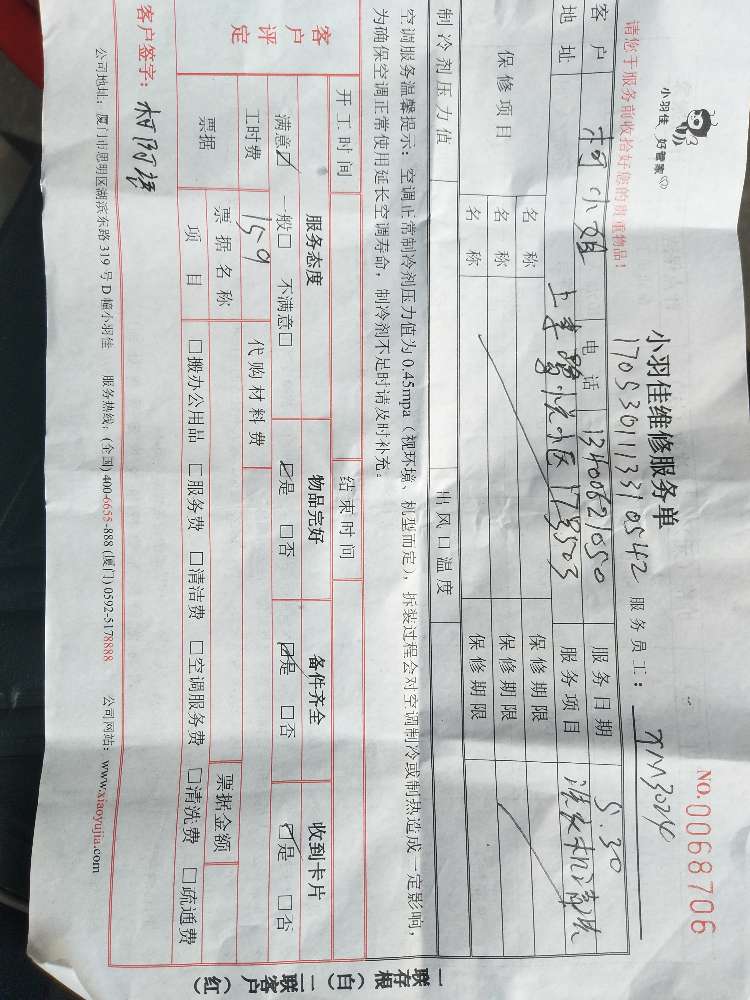 小羽佳 好管家
小羽佳维修服务单
NO.0068706
1705301113310542 服务员工：XM3024
请您于服务前收拾好您的贵重物品！
客户 柯小姐 电话 服务日期 5.30
地址 服务项目
保修项目 名称 保修期限
名称 保修期限
名称 保修期限
制冷剂压力值 出风口温度
空调服务温馨提示：空调正常制冷剂压力值为0.45mpa（视环境、机型而定），拆装过程会对空调制冷或制热造成一定影响，
为确保空调正常使用延长空调寿命，制冷剂不足时请及时补充。
开工时间 结束时间
客户评定 服务态度 物品完好 备件齐全 收到卡片
满意☑ 一般□ 不满意□ ☑是 □否 ☑是 □否 ☑是 □否
工时费 159 代购材料费
票据 票据名称 票据金额
项目 □搬办公用品 □服务费 □清洁费 □空调服务费 □清洗费 □疏通费
客户签字：
公司地址：厦门市思明区湖滨东路319号D幢小羽佳 服务热线：(全国) 400-6655-888 (厦门) 0592-5178888 公司网站：www.xiaoyujia.com
一联存根（白）二联客户（红）